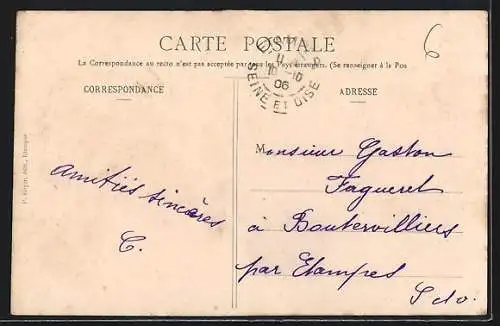 6
CARTE POSTALE
La Correspondance au recto n'est pas acceptée par tous les Pays étrangers. (Se renseigner à la Pos
CORRESPONDANCE
ADRESSE
11
10 -10
06
SEINE ET OISE
Monsieur Gaston
Fagueret
à Boutervilliers
par Etampes
S do.
amitiés sincères
C.